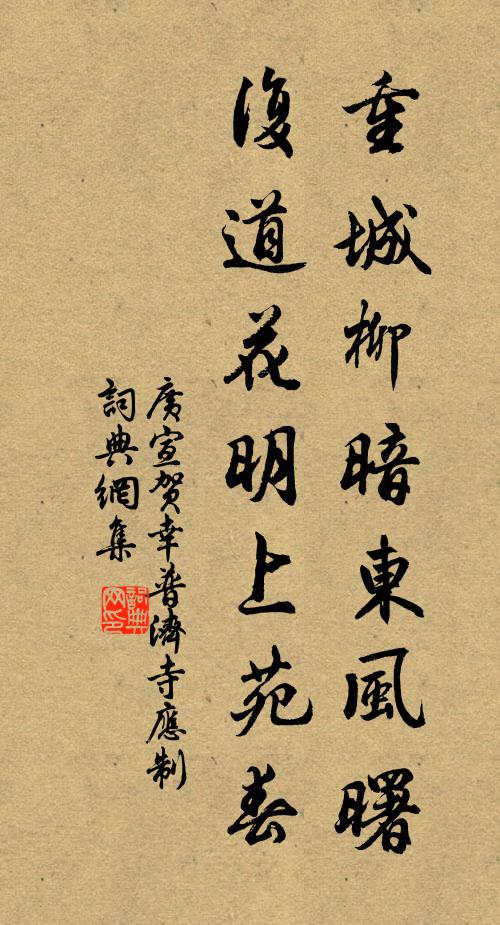 重城柳暗東風曙
復道花明上苑春
廣宣賀幸普濟寺應制
詞典網集
詞典網印